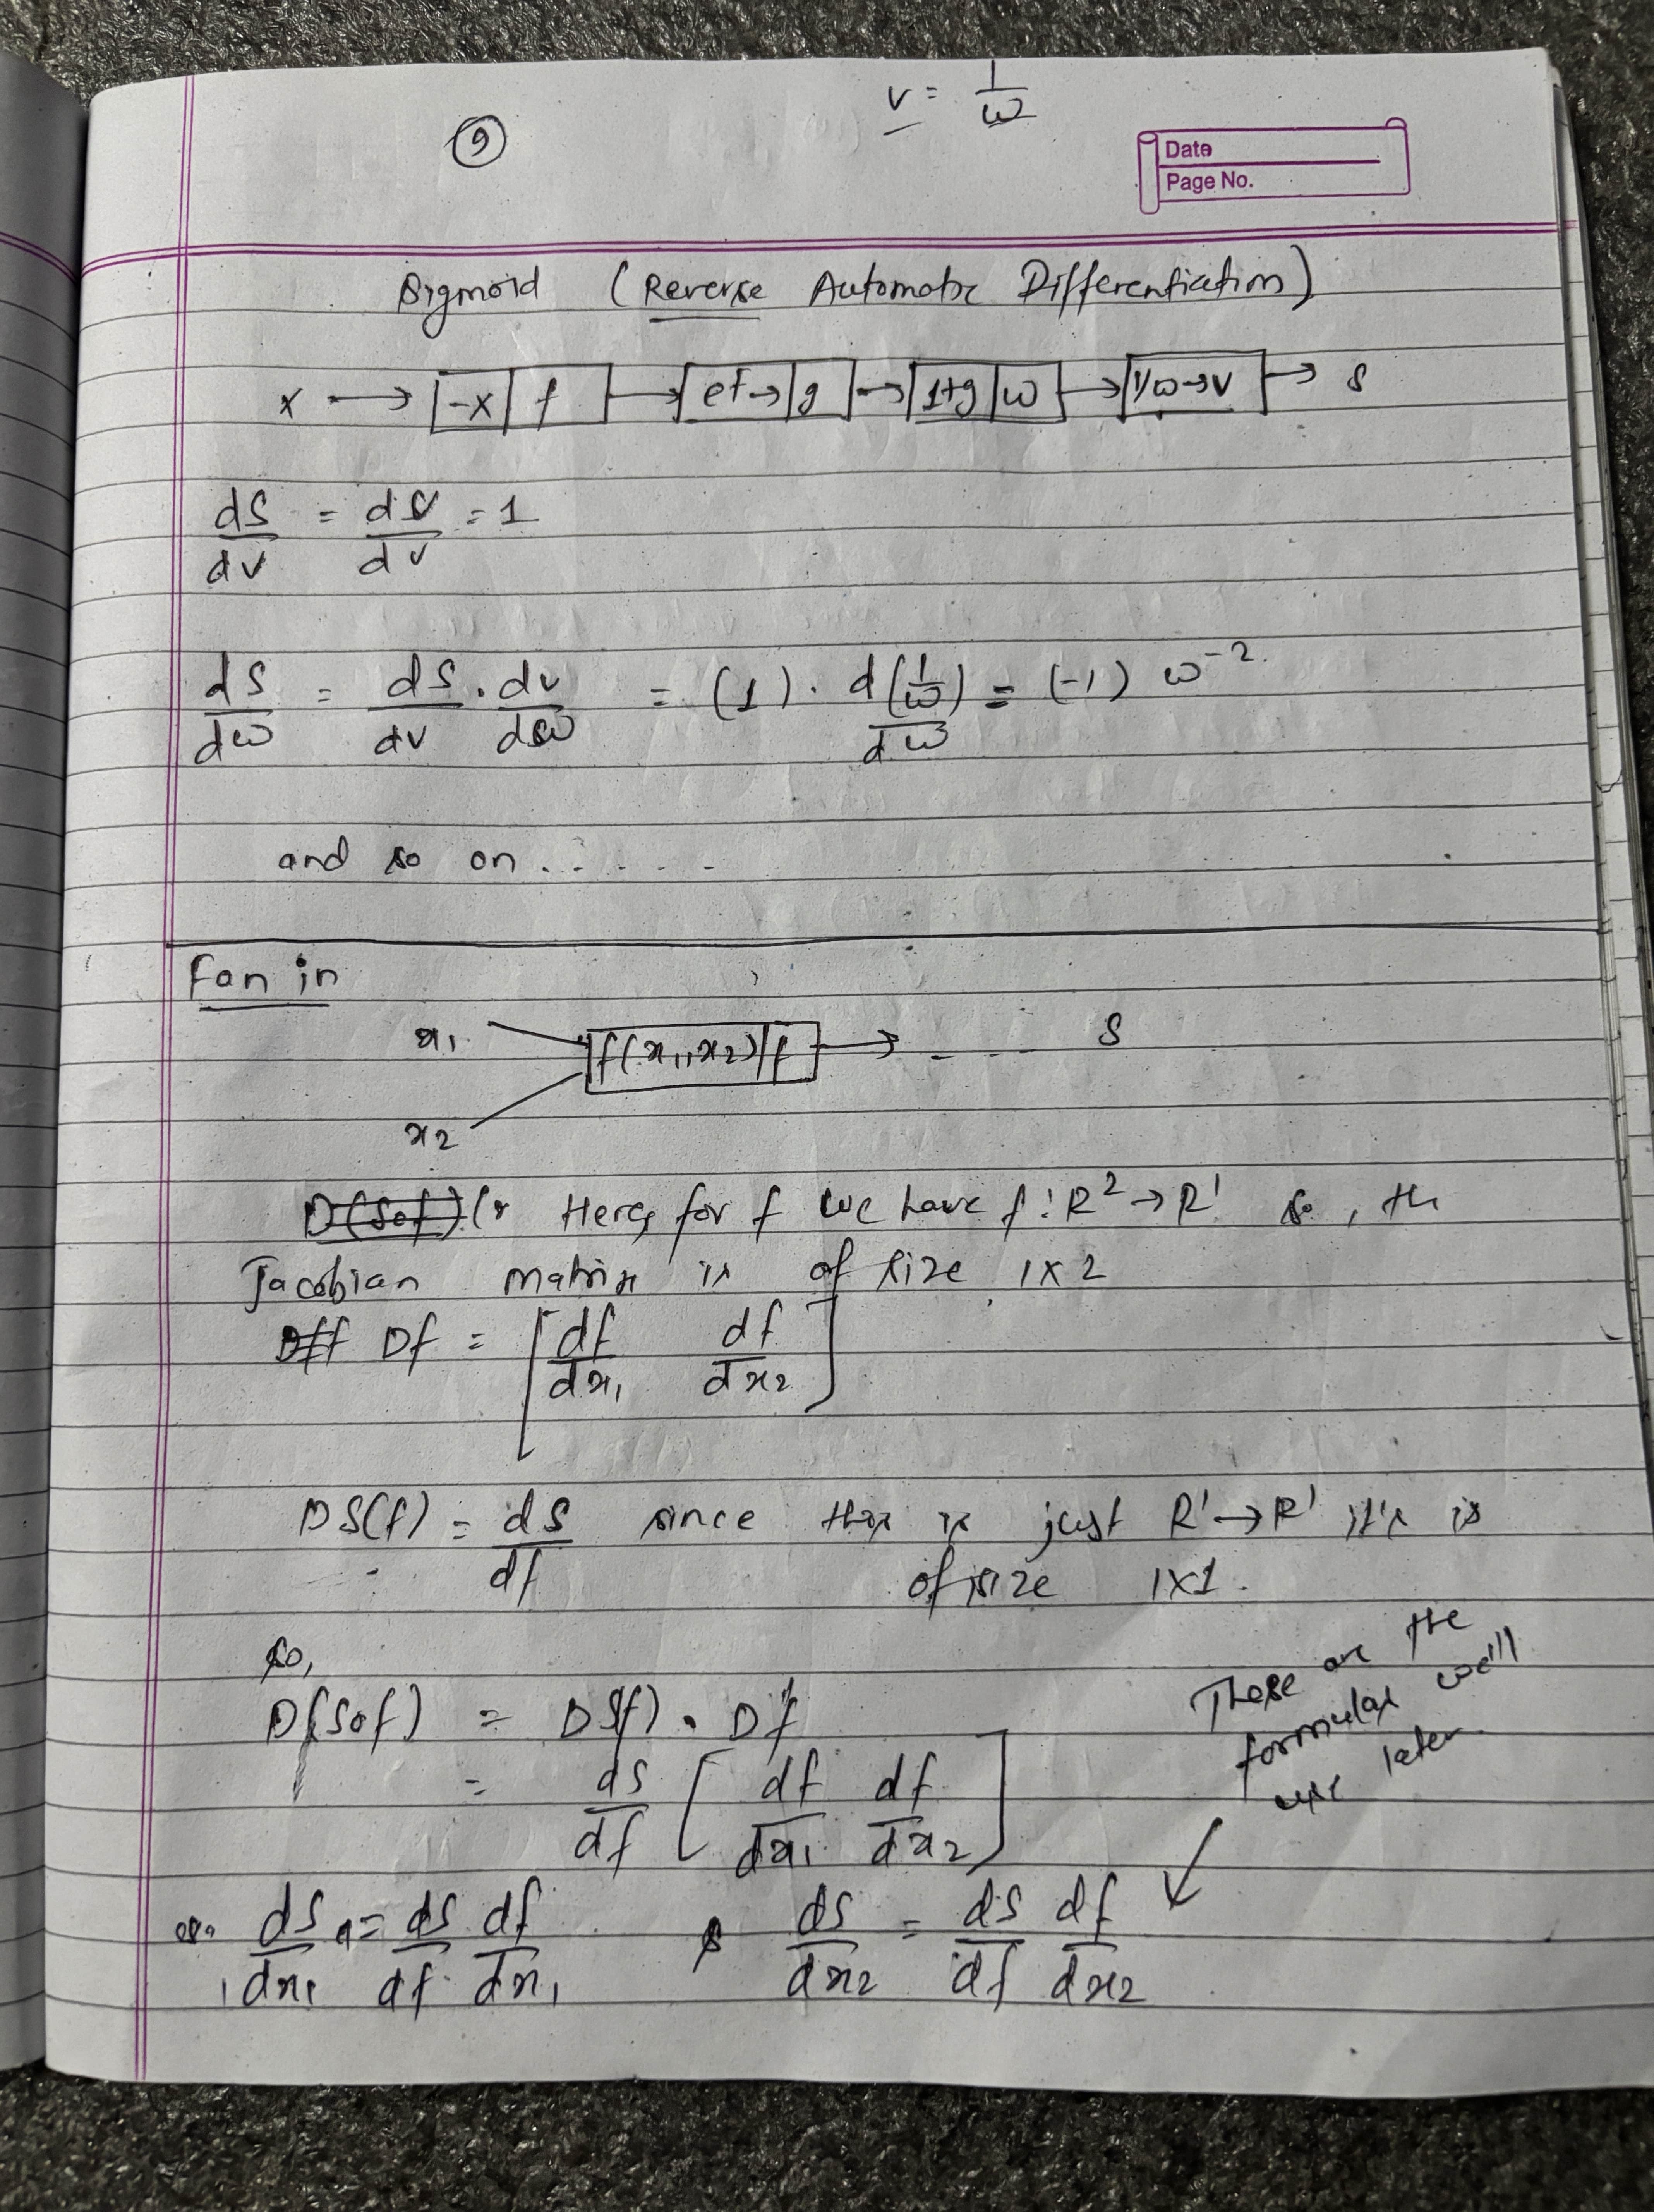 v = 1/w
9
Date
Page No.
Sigmoid (Reverse Automatic Differentiation)
x → [-x | f] → [e^f → | g] → [1+g | w] → [1/w → v] → s
ds/dv = dv/dv = 1
ds/dw = ds/dv · dv/dw = (1) · d(1/w)/dw = (-1) w^-2
and so on . . . . . .
Fan in
x₁
[f(x₁, x₂) | f] → - - - s
x₂
D(Sof) Here, for f we have f: R² → R¹ so, the
Jacobian matrix is of size 1x2
Df = [df/dx₁ df/dx₂]
DS(f) = ds/df since this is just R¹ → R¹ it's is
of size 1x1.
so,
D(Sof) = DS(f) · Df
= ds/df [df/dx₁ df/dx₂]
These are the
formulas we'll
use later
ds/dx₁ = ds/df df/dx₁ ds/dx₂ = ds/df df/dx₂